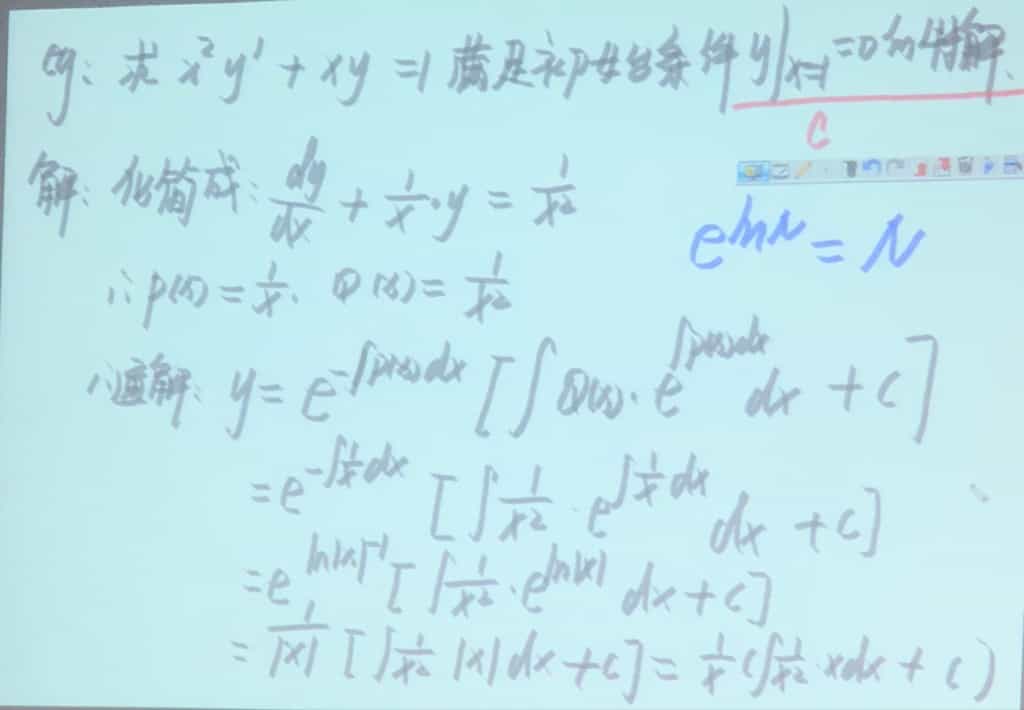 eg: 求 x²y' + xy = 1 满足初始条件 y|ₓ₌₁ = 0 的特解.
C
解: 化简成: dy/dx + 1/x · y = 1/x²
e^{lnN} = N
∴ p(x) = 1/x. Q(x) = 1/x²
∴通解: y = e^{-∫p(x)dx} [∫Q(x)· e^{∫p(x)dx} dx + C]
= e^{-∫1/x dx} [∫1/x² · e^{∫1/x dx} dx + C]
= e^{ln|x|^{-1}} [∫1/x² · e^{ln|x|} dx + C]
= 1/|x| [∫1/x² |x| dx + C] = 1/x (∫1/x² · x dx + C)